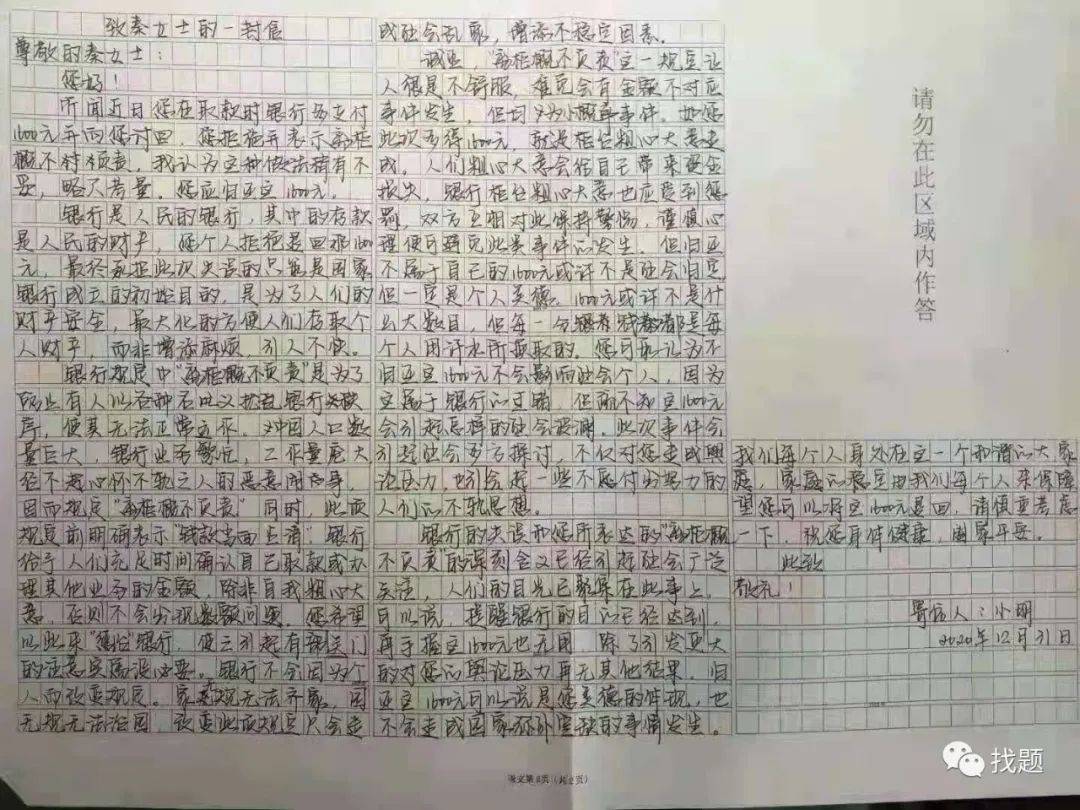 致秦女士的一封信
尊敬的秦女士：
您好！
听闻近日您在取款时银行多支付
1600元并向您讨回，您拒绝并表示“离柜
概不付负责”。我认为这种做法稍有不
妥，略欠考量。您应归还这1600元。
银行是人民的银行，其中的存款
是人民的财产，您个人拒绝退回那1600
元，最终承担此次失误的只能是国家
银行成立的初始目的，是为了人们的
财产安全，最大化的方便人们存取个
人财产，而非增添麻烦，引人不快。
银行规定中“离柜概不负责”是为了
防止有人以各种名义扰乱银行
库，使其无法正常运作。中国人口数
量巨大，银行业务繁忙，工作量庞大
经不起心怀不轨之人的恶意闹事，
因而规定“离柜概不负责”同时，此项
规定前明确表示“钱款当面点清”，银行
给予人们充足时间确认自己取款或办
理其他业务的金额，除非自我粗心大
意，否则不会出现差额问题。您希望
以此来“惩治”银行，使之引起有关部门
的注意实属没必要。银行不会因为个
人而改变规定。家无规无法齐家，国
无规无法治国，改变此项规定只会造
成社会乱象，增添不稳定因素。
诚然，“离柜概不负责”这一规定让
人很是不舒服，难免会有金额不对应
事件发生，但均为小概率事件。如您
此次多得1600元，就是柜台粗心大意造
成。人们粗心大意会给自己带来资金
损失，银行柜台粗心大意也应受到惩
罚，双方互相对此保持警惕，谨慎心
理便可避免此类事件的发生。但归还
不属于自己的1600元或许不是社会归定
但一定是个人美德。1600元或许不是什
么大数目，但每一分钱都是每
个人用汗水所换取的。您可能认为不
归还这1600元不会影响社会个人，因为
它属于银行的过错，但殊不知这1600元
会引起怎样的社会波澜。此次事件会
引起社会多方探讨，不仅对您造成舆
论压力，也会引起一些不愿付出努力的
人们的不轨思想。
银行的失误和您所表达的“离柜概
不负责”的深刻含义已经引起社会广泛
关注，人们的目光已聚集在此事上，
可以说，提醒银行的目的已经达到，
再手握这1600元也无用，除了引发更大
的对您的舆论压力再无其他结果，归
还这1600元可以说是您美德的体现，也
不会造成国家额外空缺的事情发生。
我们每个人身处在这一个和谐的大家
庭，家庭的稳定由我们每个人来保障
望您可以将这1600元退回，请慎重考虑
一下，祝您身体健康，阖家平安。
此致
敬礼！
寄信人：小明
2020年12月31日
请勿在此区域内作答
语文第8页（共8页）
找题